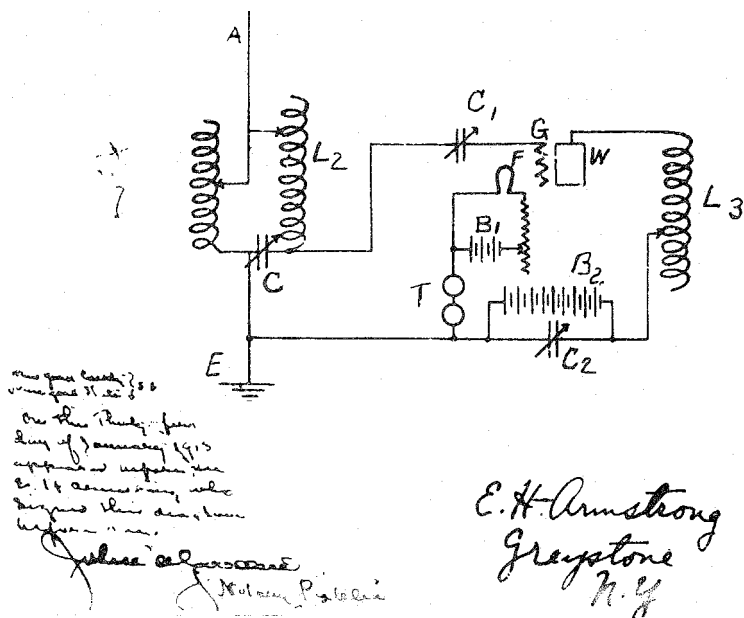 A
L2
C
E
C1
G
F
W
L3
B1
B2
T
C2
On this Thirty-first
day of January 1913
appeared before me
E. H. Armstrong who
signed this
before me.
Notary Public
E. H. Armstrong
Greystone
N.Y